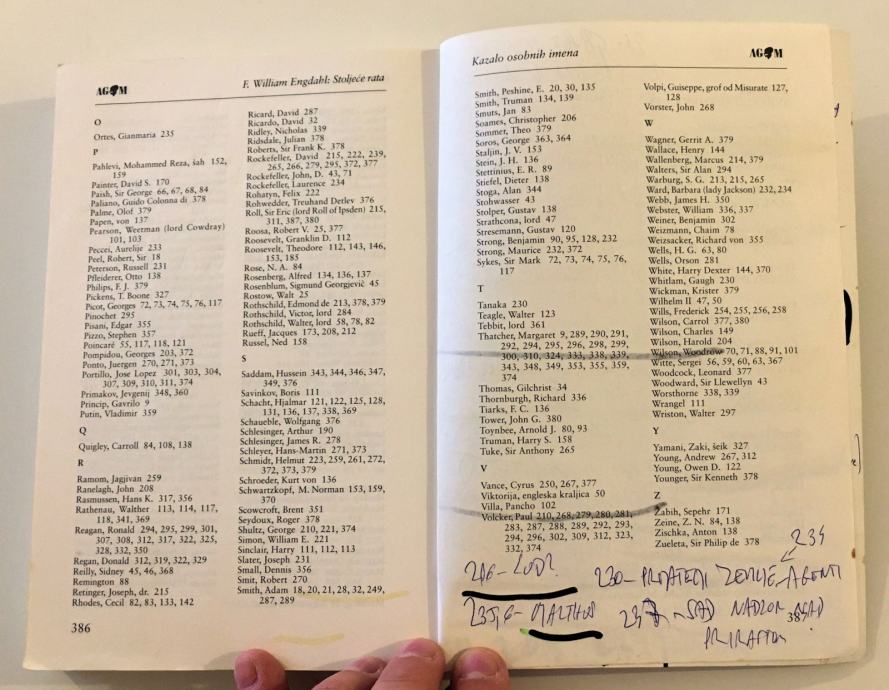 AGM
F. William Engdahl: Stoljeće rata
O
Ortes, Gianmaria 235
P
Pahlevi, Mohammed Reza, šah 152,
159
Painter, David S. 170
Paish, Sir George 66, 67, 68, 84
Paliano, Guido Colonna di 378
Palme, Olof 379
Papen, von 137
Pearson, Weetman (lord Cowdray)
101, 103
Peccei, Aurelije 233
Peel, Robert, Sir 18
Peterson, Russell 231
Pfleiderer, Otto 138
Philips, F. J. 379
Pickens, T. Boone 327
Picot, Georges 72, 73, 74, 75, 76, 117
Pinochet 295
Pisani, Edgar 355
Pizzo, Stephen 357
Poincaré 55, 117, 118, 121
Pompidou, Georges 203, 372
Ponto, Juergen 270, 271, 373
Portillo, Jose Lopez 301, 303, 304,
307, 309, 310, 311, 374
Primakov, Jevgenij 348, 360
Princip, Gavrilo 9
Putin, Vladimir 359
Q
Quigley, Carroll 84, 108, 138
R
Ramom, Jagjivan 259
Ranelagh, John 208
Rasmussen, Hans K. 317, 356
Rathenau, Walther 113, 114, 117,
118, 341, 369
Reagan, Ronald 294, 295, 299, 301,
307, 308, 312, 317, 322, 325,
328, 332, 350
Regan, Donald 312, 319, 322, 329
Reilly, Sidney 45, 46, 368
Remington 88
Retinger, Joseph, dr. 215
Rhodes, Cecil 82, 83, 133, 142
386
Ricard, David 287
Ricardo, David 32
Ridley, Nicholas 339
Ridsdale, Julian 378
Roberts, Sir Frank K. 378
Rockefeller, David 215, 222, 239,
265, 266, 279, 295, 372, 377
Rockefeller, John, D. 43, 71
Rockefeller, Laurence 234
Rohatyn, Felix 222
Rohwedder, Treuhand Detlev 376
Roll, Sir Eric (lord Roll of Ipsden) 215,
311, 387, 380
Roosa, Robert V. 25, 377
Roosevelt, Granklin D. 112
Roosevelt, Theodore 112, 143, 146,
153, 185
Rose, N. A. 84
Rosenberg, Alfred 134, 136, 137
Rosenblum, Sigmund Georgjevič 45
Rostow, Walt 25
Rothschild, Edmond de 213, 378, 379
Rothschild, Victor, lord 284
Rothschild, Walter, lord 58, 78, 82
Rueff, Jacques 173, 208, 212
Russel, Ned 158
S
Saddam, Hussein 343, 344, 346, 347,
349, 376
Savinkov, Boris 111
Schacht, Hjalmar 121, 122, 125, 128,
131, 136, 137, 138, 369
Schaueble, Wolfgang 376
Schlesinger, Arthur 190
Schlesinger, James R. 278
Schleyer, Hans-Martin 271, 373
Schmidt, Helmut 223, 259, 261, 272,
372, 373, 379
Schroeder, Kurt von 136
Schwartzkopf, M. Norman 153, 159,
370
Scowcroft, Brent 351
Seydoux, Roger 378
Shultz, George 210, 221, 374
Simon, William E. 221
Sinclair, Harry 111, 112, 113
Slater, Joseph 231
Small, Dennis 356
Smit, Robert 270
Smith, Adam 18, 20, 21, 28, 32, 249,
287, 289
Kazalo osobnih imena
AGM
Smith, Peshine, E. 20, 30, 135
Smith, Truman 134, 139
Smuts, Jan 83
Soames, Christopher 206
Sommer, Theo 379
Soros, George 363, 364
Staljin, J. V. 153
Stein, J. H. 136
Stettinius, E. R. 89
Stiefel, Dieter 138
Stoga, Alan 344
Stohwasser 43
Stolper, Gustav 138
Strathcona, lord 47
Stresemann, Gustav 120
Strong, Benjamin 90, 95, 128, 232
Strong, Maurice 232, 372
Sykes, Sir Mark 72, 73, 74, 75, 76,
117
T
Tanaka 230
Teagle, Walter 123
Tebbit, lord 361
Thatcher, Margaret 9, 289, 290, 291,
292, 294, 295, 296, 298, 299,
300, 310, 324, 333, 338, 339,
343, 348, 349, 353, 355, 359,
374
Thomas, Gilchrist 34
Thornburgh, Richard 336
Tiarks, F. C. 136
Tower, John G. 380
Toynbee, Arnold J. 80, 93
Truman, Harry S. 158
Tuke, Sir Anthony 265
V
Vance, Cyrus 250, 267, 377
Viktorija, engleska kraljica 50
Villa, Pancho 102
Volcker, Paul 210, 268, 279, 280, 281,
283, 287, 288, 289, 292, 293,
294, 296, 302, 309, 312, 323,
332, 374
Volpi, Guiseppe, grof od Misurate 127,
128
Vorster, John 268
W
Wagner, Gerrit A. 379
Wallace, Henry 144
Wallenberg, Marcus 214, 379
Walters, Sir Alan 294
Warburg, S. G. 213, 215, 265
Ward, Barbara (lady Jackson) 232, 234
Webb, James H. 350
Webster, William 336, 337
Weiner, Benjamin 302
Weizmann, Chaim 78
Weizsacker, Richard von 355
Wells, H. G. 63, 80
Wells, Orson 281
White, Harry Dexter 144, 370
Whitlam, Gaugh 230
Wickman, Krister 379
Wilhelm II 47, 50
Wills, Frederick 254, 255, 256, 258
Wilson, Carrol 377, 380
Wilson, Charles 149
Wilson, Harold 204
Wilson, Woodrow 70, 71, 88, 91, 101
Witte, Sergei 56, 59, 60, 63, 367
Woodcock, Leonard 377
Woodward, Sir Llewellyn 43
Worsthorne 338, 339
Wrangel 111
Wriston, Walter 297
Y
Yamani, Zaki, šeik 327
Young, Andrew 267, 312
Young, Owen D. 122
Younger, Sir Kenneth 378
Z
Zabih, Sepehr 171
Zeine, Z. N. 84, 138
Zischka, Anton 138
Zueleta, Sir Philip de 378
234
230 - PRIJATELJI ZEMLJE - AGENTI
MALTHUS
SAD NADZOR NAD
387